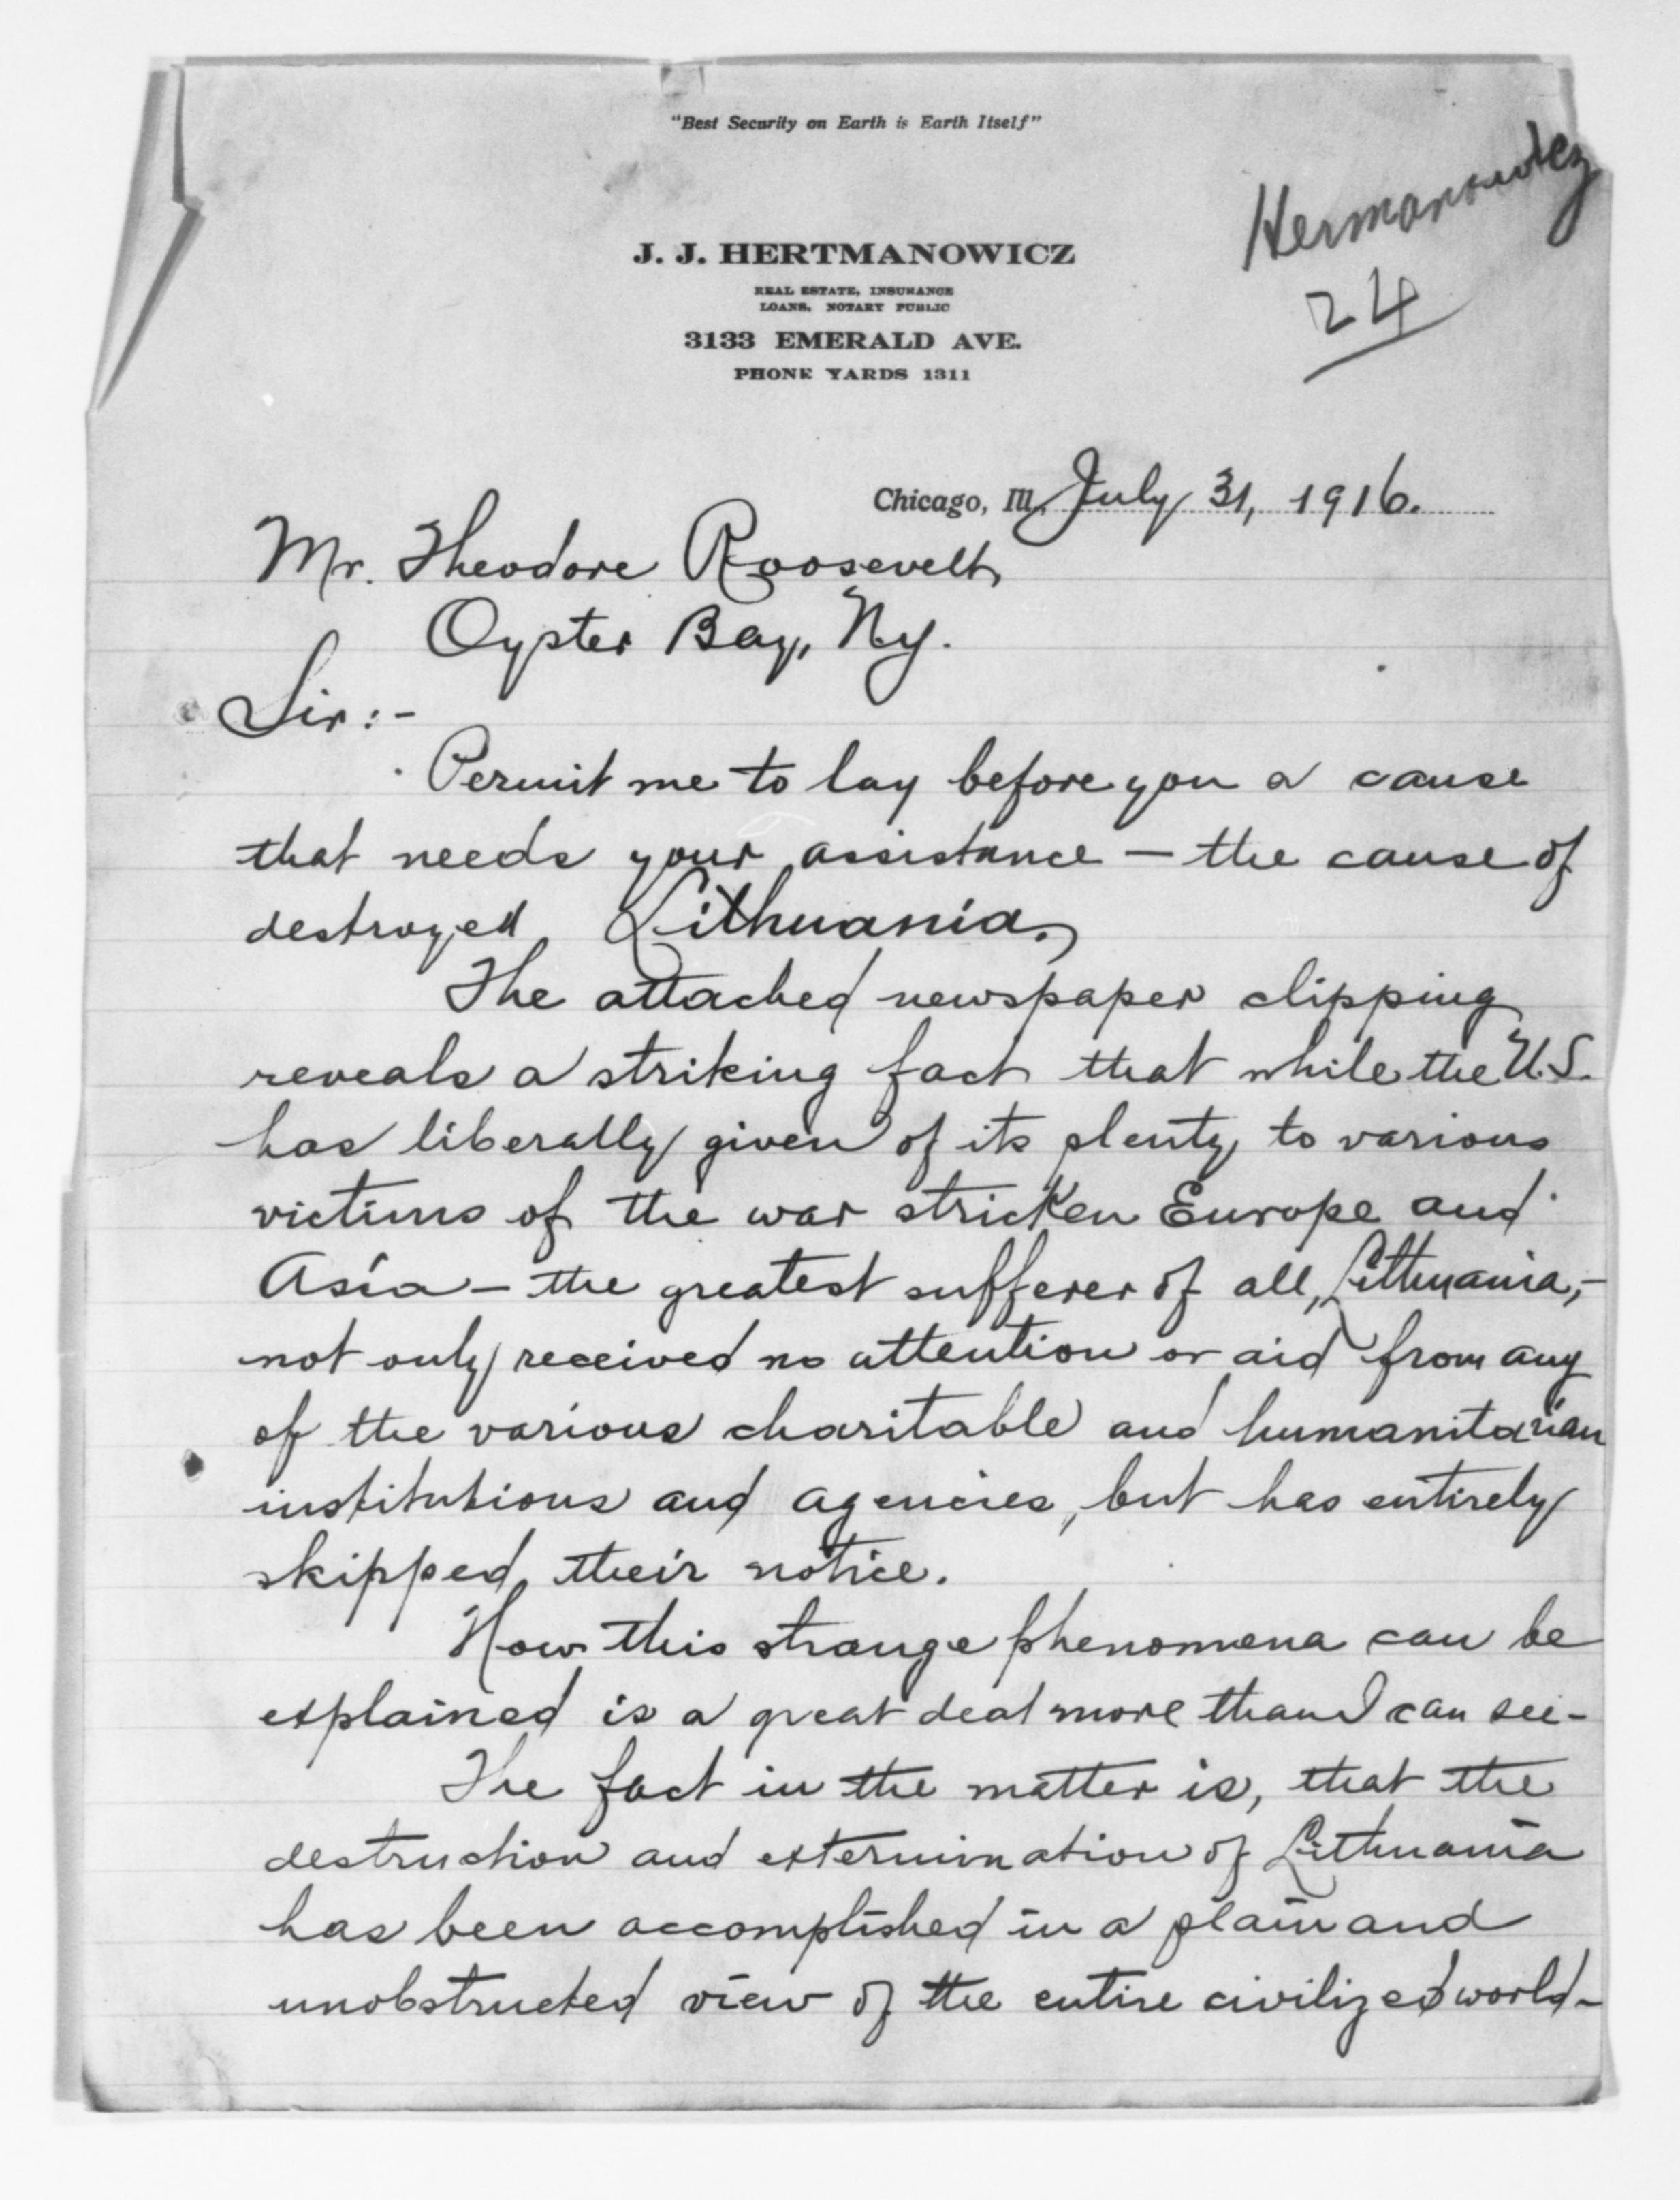 "Best Security on Earth is Earth Itself"
Hermanowicz
24
J. J. HERTMANOWICZ
REAL ESTATE, INSURANCE
LOANS, NOTARY PUBLIC
3133 EMERALD AVE.
PHONE YARDS 1311
Chicago, Ill. July 31, 1916.
Mr. Theodore Roosevelt,
Oyster Bay, Ny.
Sir:-
Permit me to lay before you a cause
that needs your assistance — the cause of
destroyed Lithuania.
The attached newspaper clipping
reveals a striking fact that while the U.S.
has liberally given of its plenty to various
victims of the war stricken Europe and
Asia — the greatest sufferer of all, Lithuania,-
not only received no attention or aid from any
of the various charitable and humanitarian
institutions and agencies, but has entirely
skipped their notice.
How this strange phenomena can be
explained is a great deal more than I can see-
The fact in the matter is, that the
destruction and extermination of Lithuania
has been accomplished in a plain and
unobstructed view of the entire civilized world-